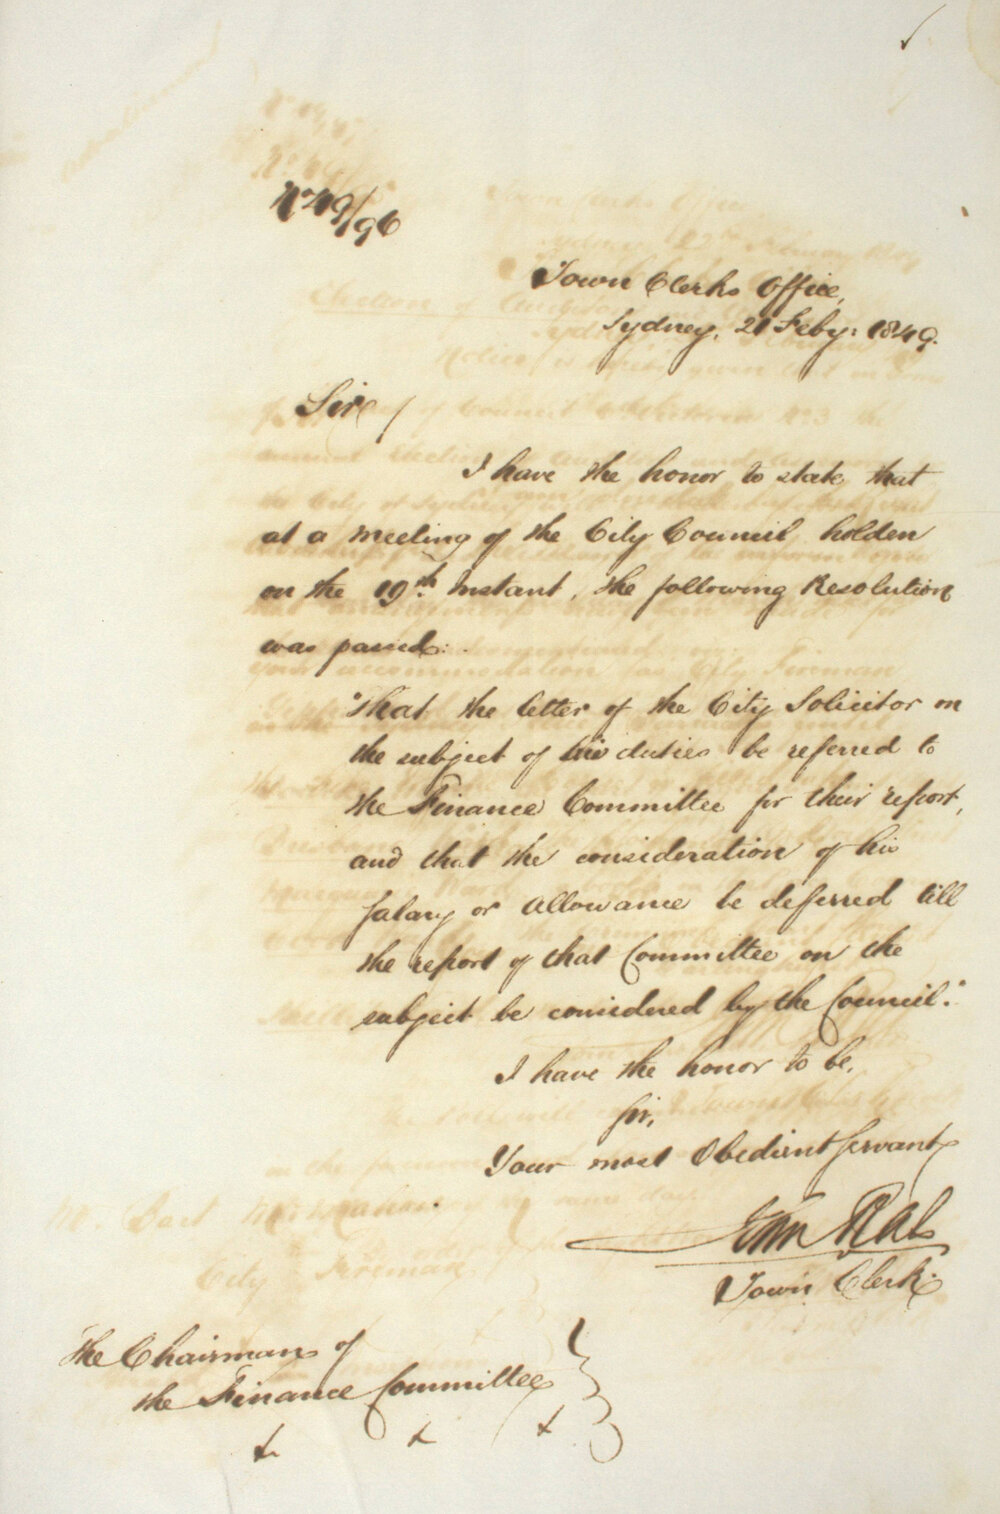 No 49/96
Town Clerks Office,
Sydney, 21 Feby: 1849.
Sir/
I have the honor to state that
at a meeting of the City Council holden
on the 19th Instant, the following Resolution
was passed:
"That the letter of the City Solicitor on
the subject of his duties be referred to
the Finance Committee for their report,
and that the consideration of his
Salary or allowance be deferred till
the report of that Committee on the
subject be considered by the Council."
I have the honor to be,
Sir,
Your most Obedient Servant
John Rae
Town Clerk.
The Chairman of
the Finance Committee